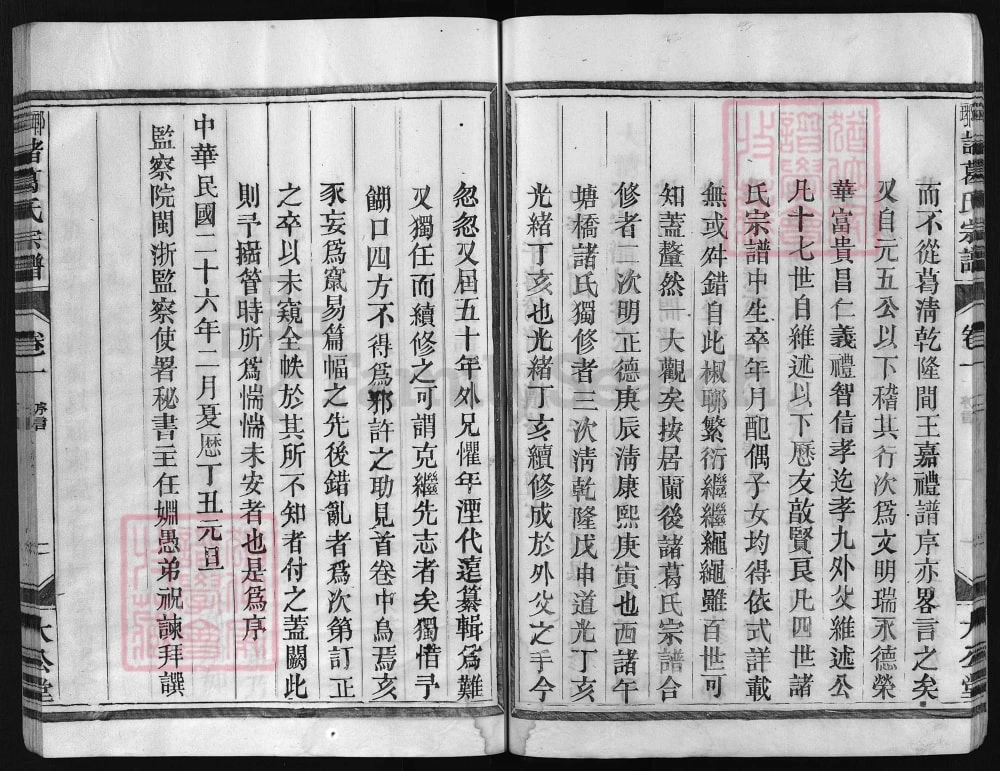 而不從葛淸乾隆間王嘉禮譜序亦畧言之矣
又自元五公以下稽其行次爲文明瑞永德榮
華富貴昌仁義禮智信孝迄孝九外父維述公
凡十七世自維述以下歷友敔賢良凡四世諸
氏宗譜中生卒年月配偶子女均得依式詳載
無或舛錯自此椒聊繁衍繼繼繩繩雖百世可
知蓋釐然一大觀矣按居蘭後諸葛氏宗譜合
修者二次明正德庚辰淸康熙庚寅也西諸午
塘橋諸氏獨修者三次淸乾隆戊申道光丁亥
光緒丁亥也光緒丁亥續修成於外父之手今
忽忽又屆五十年外兄懼年湮代遠纂輯爲難
又獨任而續修之可謂克繼先志者矣獨惜予
餬口四方不得爲邪許之助見首卷中烏焉亥
豕妄爲竄易篇幅之先後錯亂者爲次第訂正
之卒以未窺全帙於其所不知者付之蓋闕此
則予搦管時所爲惴惴未安者也是爲序
中華民國二十六年二月夏歷丁丑元旦
監察院閩浙監察使署秘書主任姻愚弟祝諫拜譔
諸葛氏宗譜
卷一
序譜
大公堂